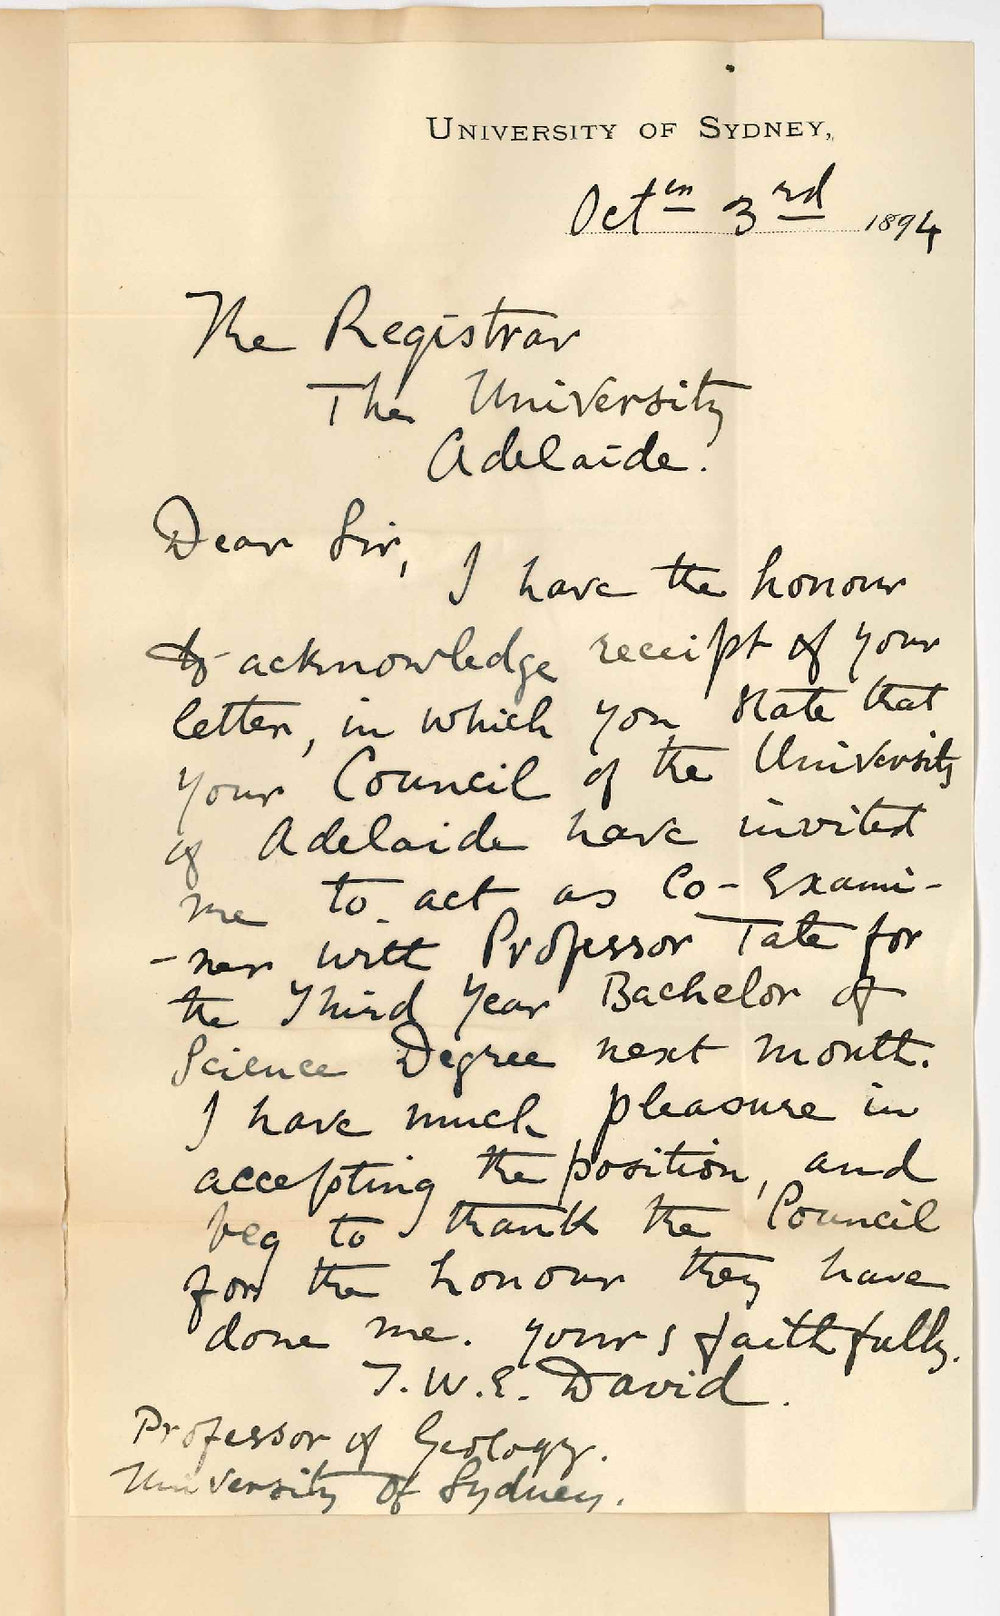 UNIVERSITY OF SYDNEY,
Oct er 3rd 1894
The Registrar
The University
Adelaide.
Dear Sir,
I have the honour
to acknowledge receipt of your
letter, in which you state that
your Council of the University
of Adelaide have invited
me to act as Co-Exami-
-ner with Professor Tate for
the Third Year Bachelor of
Science Degree next month.
I have much pleasure in
accepting the position, and
beg to thank the Council
for the honour they have
done me. Yours faithfully.
T.W.E. David.
Professor of Geology.
University of Sydney.